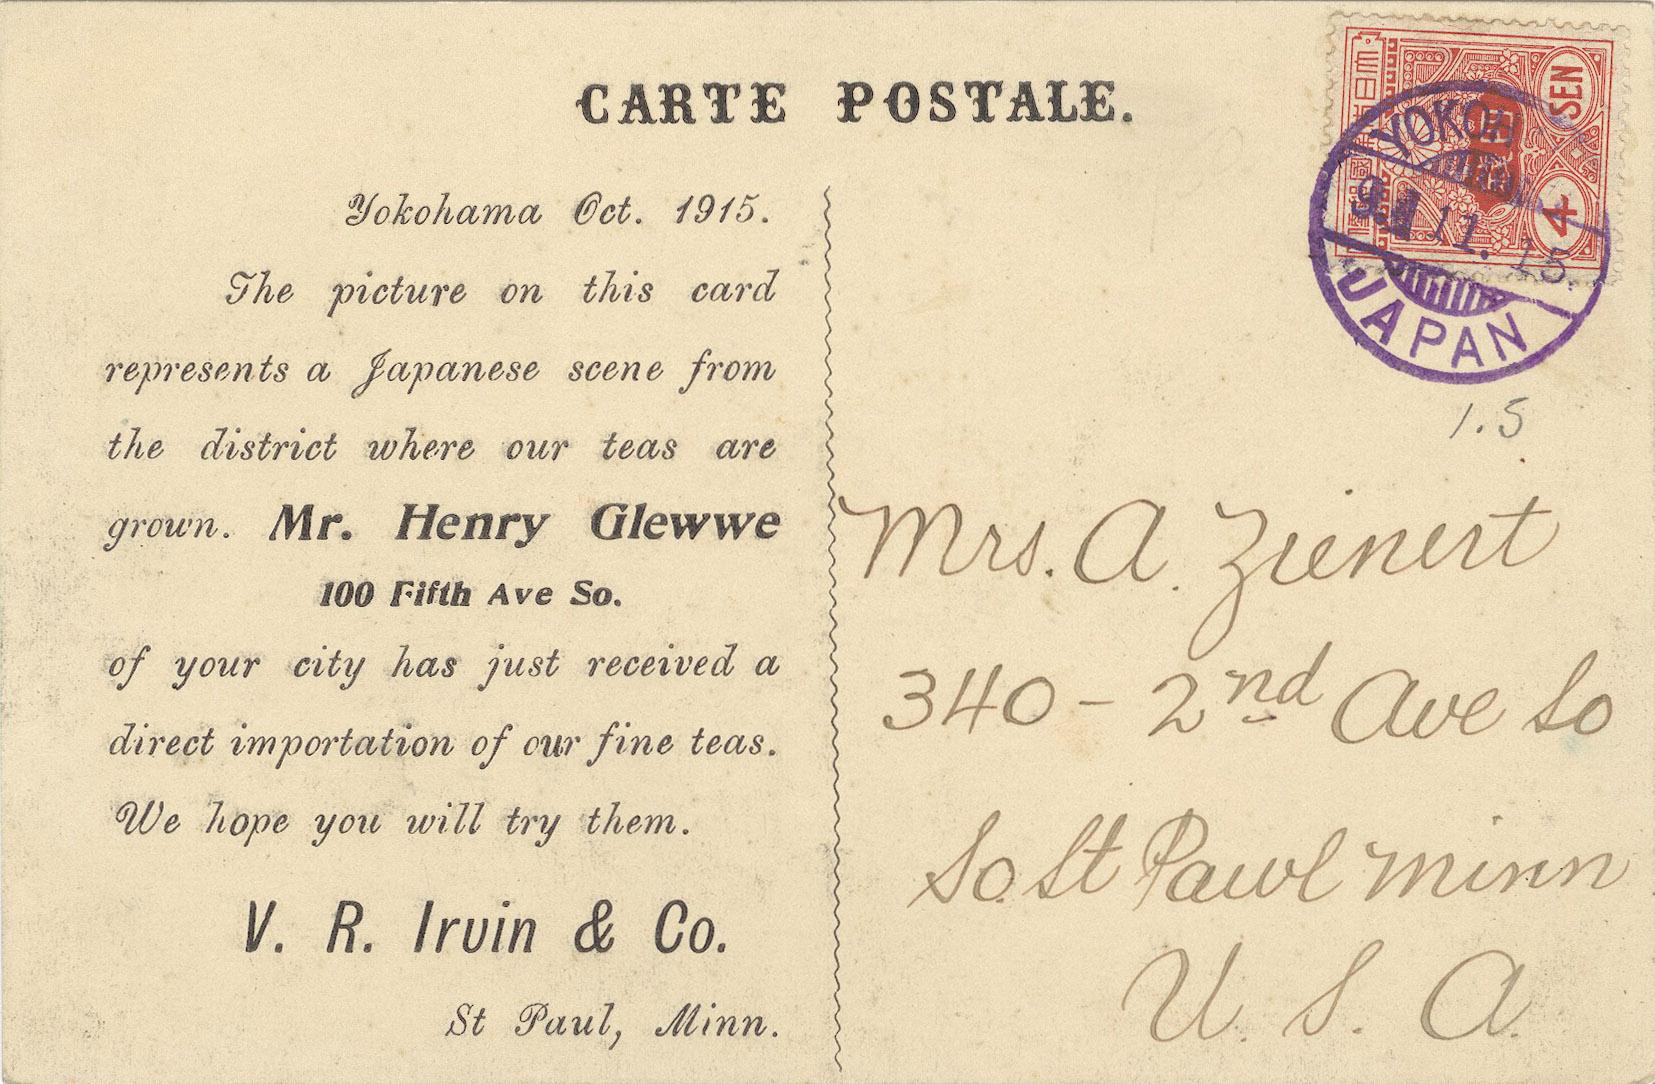 CARTE POSTALE.
Yokohama Oct. 1915.
The picture on this card
represents a Japanese scene from
the district where our teas are
grown. Mr. Henry Glewwe
100 Fifth Ave So.
of your city has just received a
direct importation of our fine teas.
We hope you will try them.
V. R. Irvin & Co.
St Paul, Minn.
SEN
4
YOKOH
9. 11. 15.
JAPAN
1.5
Mrs. A. Zienert
340 - 2nd Ave So
So. St Paul Minn
U. S. A.